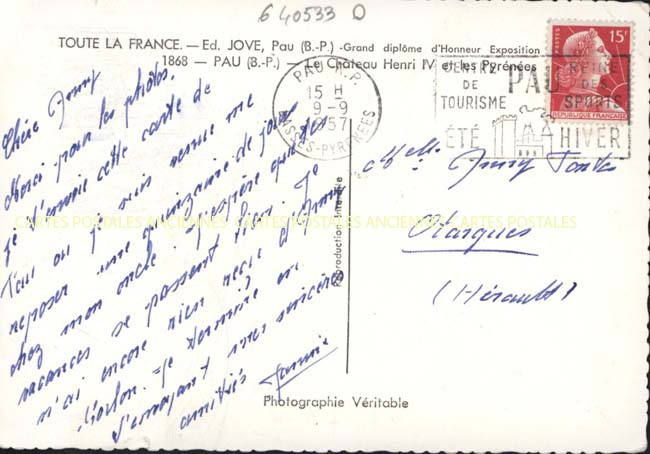 640533 D
TOUTE LA FRANCE. — Ed. JOVE, Pau (B.-P.) - Grand diplôme d'Honneur Exposition
1868 — PAU (B.-P.) — Le Château Henri IV et les Pyrénées
POSTES
15F
REPUBLIQUE FRANÇAISE
PAU R.P.
15 H
9-9
1957
BASSES-PYRENEES
CENTRE
DE
TOURISME
ÉTÉ
PAU
REINE
DES
SPORTS
HIVER
Chère
Merci pour les photos.
Je t'envoie cette carte de
Pau où je suis venue me
reposer une quinzaine de jours
chez mon oncle. J'espère que tes
vacances se passent bien. Je
n'ai encore rien reçu d'
Je termine en
t'envoyant mes sincères
amitiés
Melle
Olargues
(Hérault)
CARTES POSTALES ANCIENNES CARTES POSTALES
Reproduction Interdite
Photographie Véritable